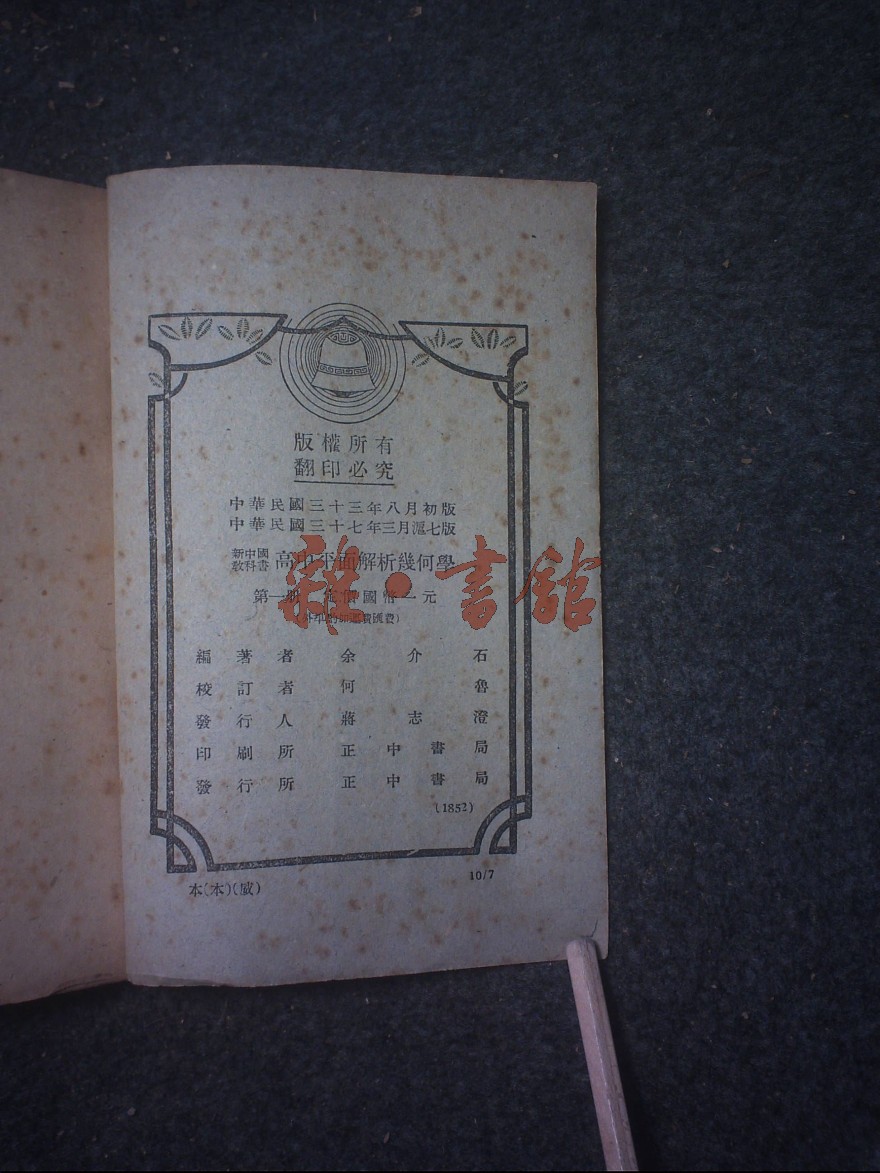 版權所有
翻印必究
中華民國三十三年八月初版
中華民國三十七年三月滬七版
新中國
教科書 高中平面解析幾何學
第一冊 定價國幣一元
(外埠酌加運費匯費)
編著者 余介石
校訂者 何魯
發行人 蔣志澄
印刷所 正中書局
發行所 正中書局
(1852)
10/7
本(本)(威)
雜·書館